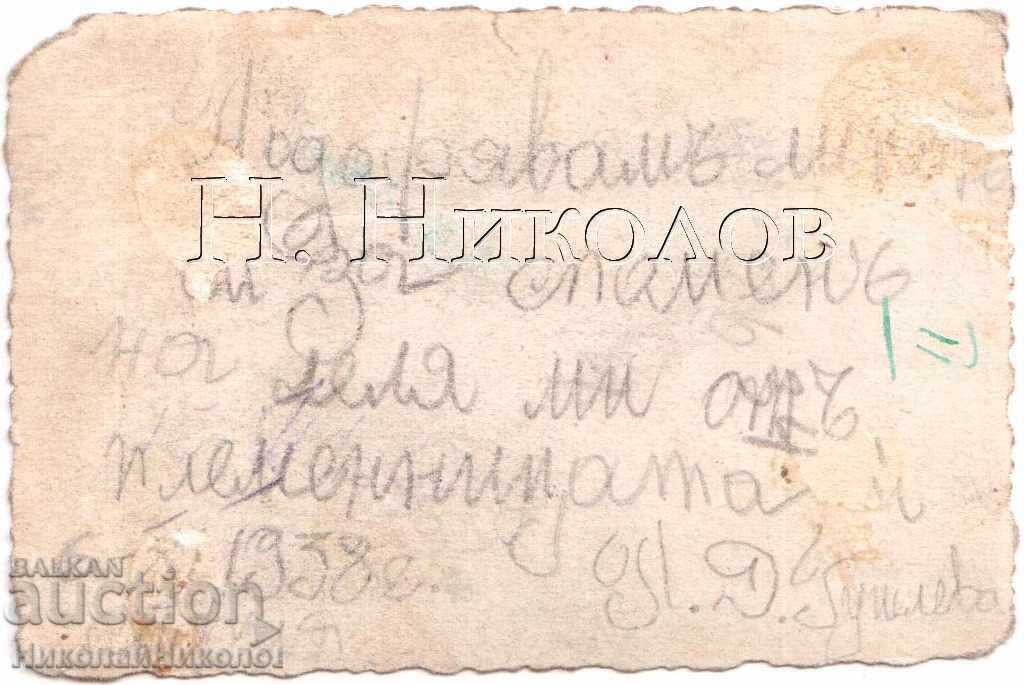 Подарявамъ
си за спаменъ
на леля ми отъ
племенницата й
1938 г. Д.
Н. Николов
BALKAN
auction
НиколайНиколов